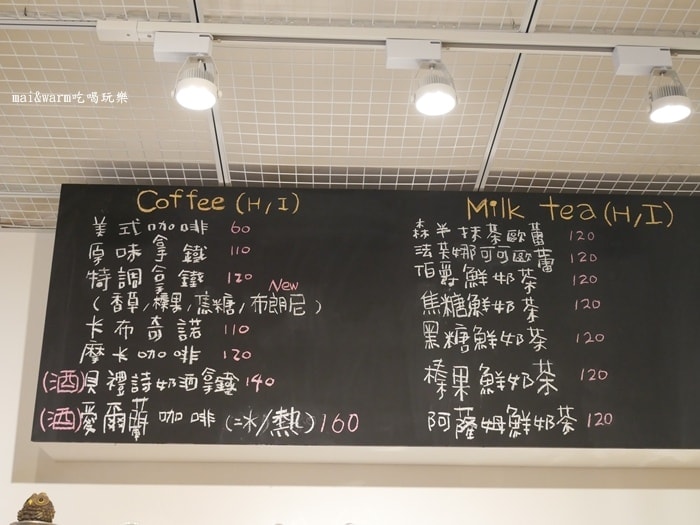 mai&warm吃喝玩樂
Coffee (H,I)
美式咖啡 60
原味拿鐵 110
特調拿鐵 120
New
(香草/榛果/焦糖/布朗尼)
卡布奇諾 110
摩卡咖啡 120
(酒)貝禮詩奶酒拿鐵 140
(酒)愛爾蘭咖啡 (冰/熱) 160
Milk tea (H,I)
森半抹茶歐蕾 120
法芙娜可可歐蕾 120
伯爵鮮奶茶 120
焦糖鮮奶茶 120
黑糖鮮奶茶 120
榛果鮮奶茶 120
阿薩姆鮮奶茶 120